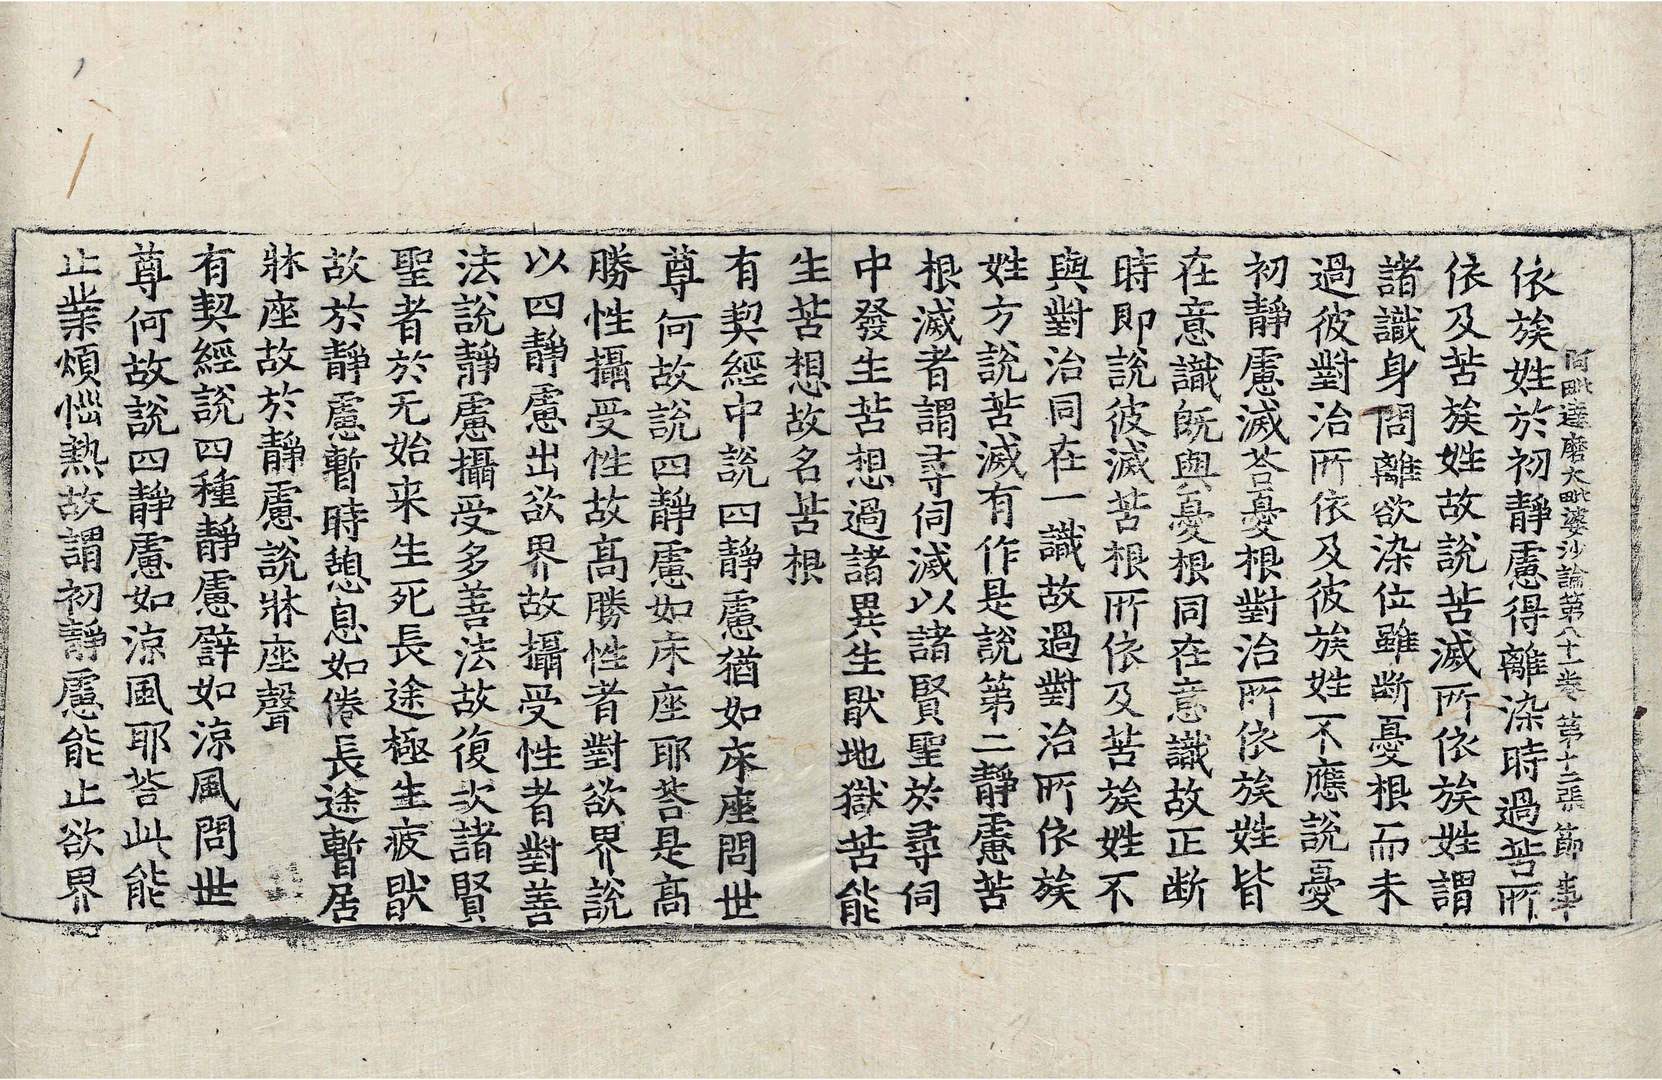 阿毗達磨大毗婆沙論第八十一卷 第十三張 節
依族姓於初靜慮得離染時過苦所
依及苦族姓故說苦滅所依族姓謂
諸識身問離欲染位雖斷憂根而未
過彼對治所依及彼族姓不應說憂
初靜慮滅荅憂根對治所依族姓皆
在意識旣與憂根同在意識故正斷
時即說彼滅苦根所依及苦族姓不
與對治同在一識故過對治所依族
姓方說苦滅有作是說第二靜慮苦
根滅者謂尋伺滅以諸賢聖於尋伺
中發生苦想過諸異生猒地獄苦能
生苦想故名苦根
有契經中說四靜慮猶如床座問世
尊何故說四靜慮如床座耶荅是高
勝性攝受性故高勝性者對欲界說
以四靜慮出欲界故攝受性者對善
法說靜慮攝受多善法故復次諸賢
聖者於无始来生死長途極生疲猒
故於靜慮暫時憩息如倦長途暫居
牀座故於靜慮說牀座聲
有契經說四種靜慮譬如涼風問世
尊何故說四靜慮如涼風耶荅此能
止業煩惱熱故謂初靜慮能止欲界